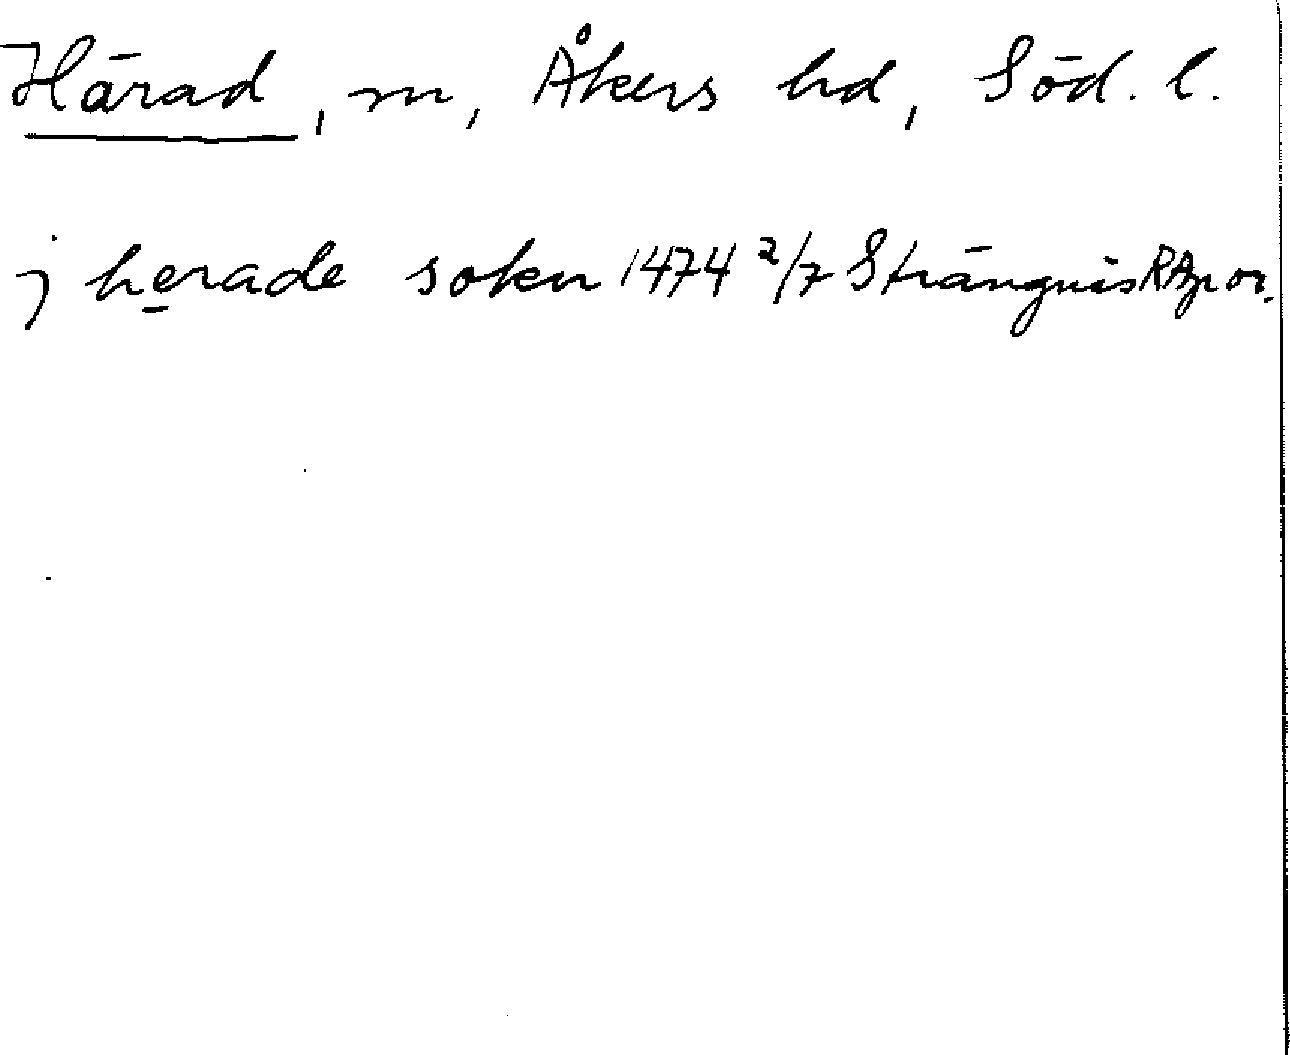 Härad, sn, Åkers hd, Söd. l.
j herade soken 1474 2/7 Strängnäs RAp or.